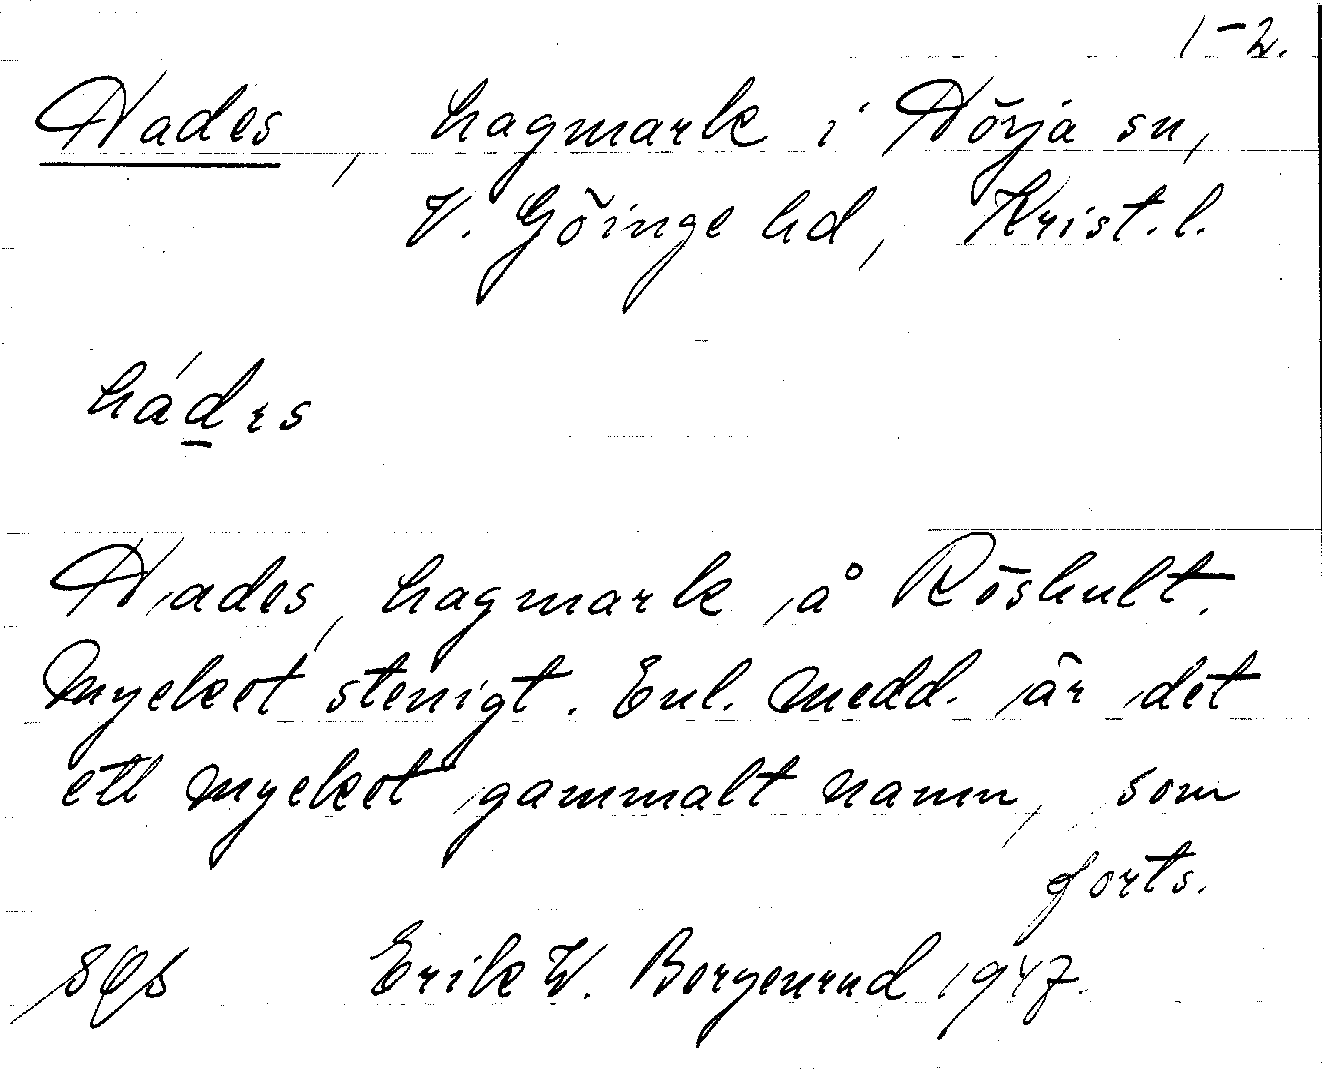 1-2.
Hades, hagmark i Hörja sn,
V. Göinge hd, Krist.l.
hádɛs
Hades, hagmark å Röshult.
Mycket stenigt. Enl. medd. är det
ett mycket gammalt namn, som
forts.
Erik W. Borgenrud 1947.